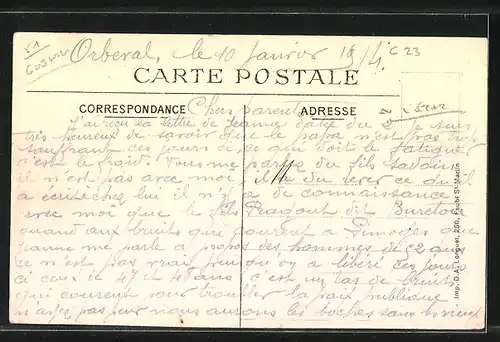 Orberal, le 10 Janvier 1914. C 23
CARTE POSTALE
CORRESPONDANCE Chers parents ADRESSE
J'ai reçu la lettre de Jeanne datée du Je suis
très heureux de savoir que le papa n'est pas trop
souffrant ces jours ci ce qui doit le fatiguer
c'est le froid. Vous me parlez du fils
il n'est pas avec moi il a du ce qu'il
a écrit chez lui il n'y a de connaissance
avec moi que le fils Pragout dit Bureton
quand aux bruits qui courent a Limoges que
Jeanne me parle a propos des hommes de 52 ans
ce n'est pas vrai a libéré ces jours
ci ceux de 47 et 48 ans c'est un tas de bruits
qui courent pour troubler la paix publique
n'ayez pas peur nous aurons les boches sans les vieux
Imp. D.A. Longuet, 250, Faubg St-Martin